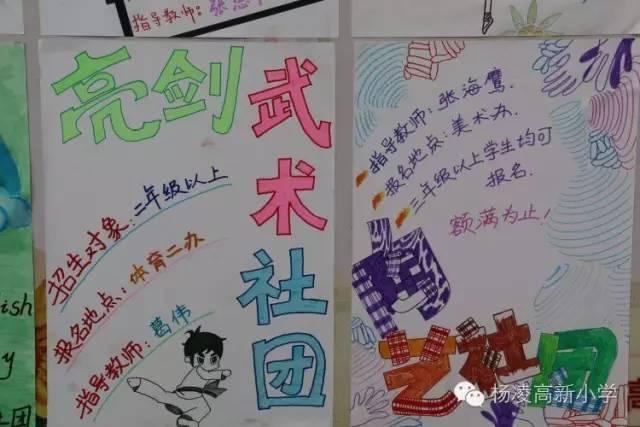 指导教师:
亮剑
武术社团
招生对象:二年级以上
报名地点:体育二办
指导教师:葛伟
指导教师:张海鹰.
报名地点:美术办.
三年级以上学生均可
报名.
额满为止!
陶艺社团
ish
y
团
杨凌高新小学